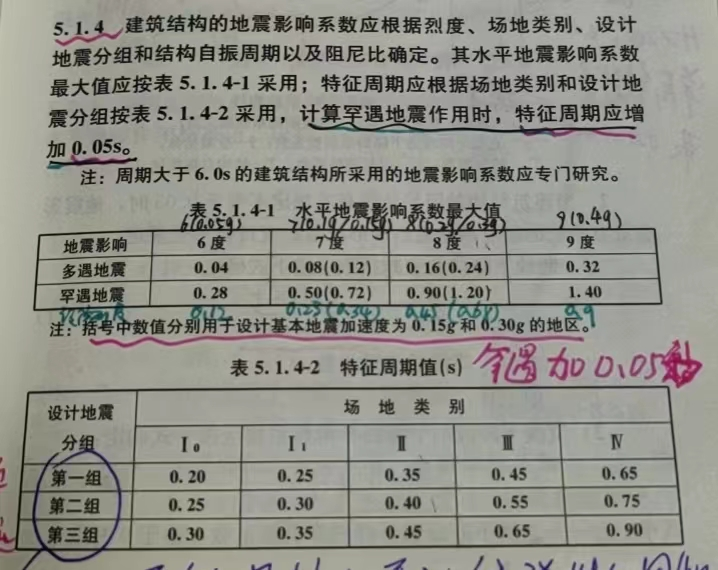 5.1.4 建筑结构的地震影响系数应根据烈度、场地类别、设计
地震分组和结构自振周期以及阻尼比确定。其水平地震影响系数
最大值应按表 5.1.4-1 采用；特征周期应根据场地类别和设计地
震分组按表 5.1.4-2 采用，计算罕遇地震作用时，特征周期应增
加 0.05s。
注：周期大于 6.0s 的建筑结构所采用的地震影响系数应专门研究。
表 5.1.4-1 水平地震影响系数最大值
6(0.05g) 7(0.1g/0.15g) 8(0.2g/0.3g) 9(0.4g)
地震影响 6 度 7 度 8 度 9 度
多遇地震 0.04 0.08(0.12) 0.16(0.24) 0.32
罕遇地震 0.28 0.50(0.72) 0.90(1.20) 1.40
0.12 0.23(0.34) 0.45(0.68) 0.9
注：括号中数值分别用于设计基本地震加速度为 0.15g 和 0.30g 的地区。
表 5.1.4-2 特征周期值(s)
罕遇加0.05秒
设计地震分组 场地类别
I₀ I₁ Ⅱ Ⅲ Ⅳ
第一组 0.20 0.25 0.35 0.45 0.65
第二组 0.25 0.30 0.40 0.55 0.75
第三组 0.30 0.35 0.45 0.65 0.90